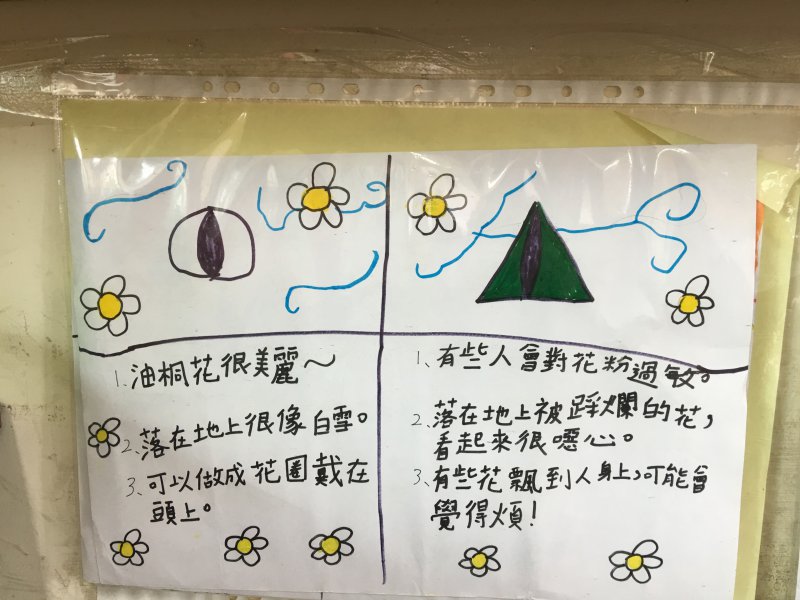 1、油桐花很美麗～
2、落在地上很像白雪。
3、可以做成花圈戴在
頭上。
1、有些人會對花粉過敏。
2、落在地上被踩爛的花，
看起來很噁心。
3、有些花飄到人身上，可能會
覺得煩！